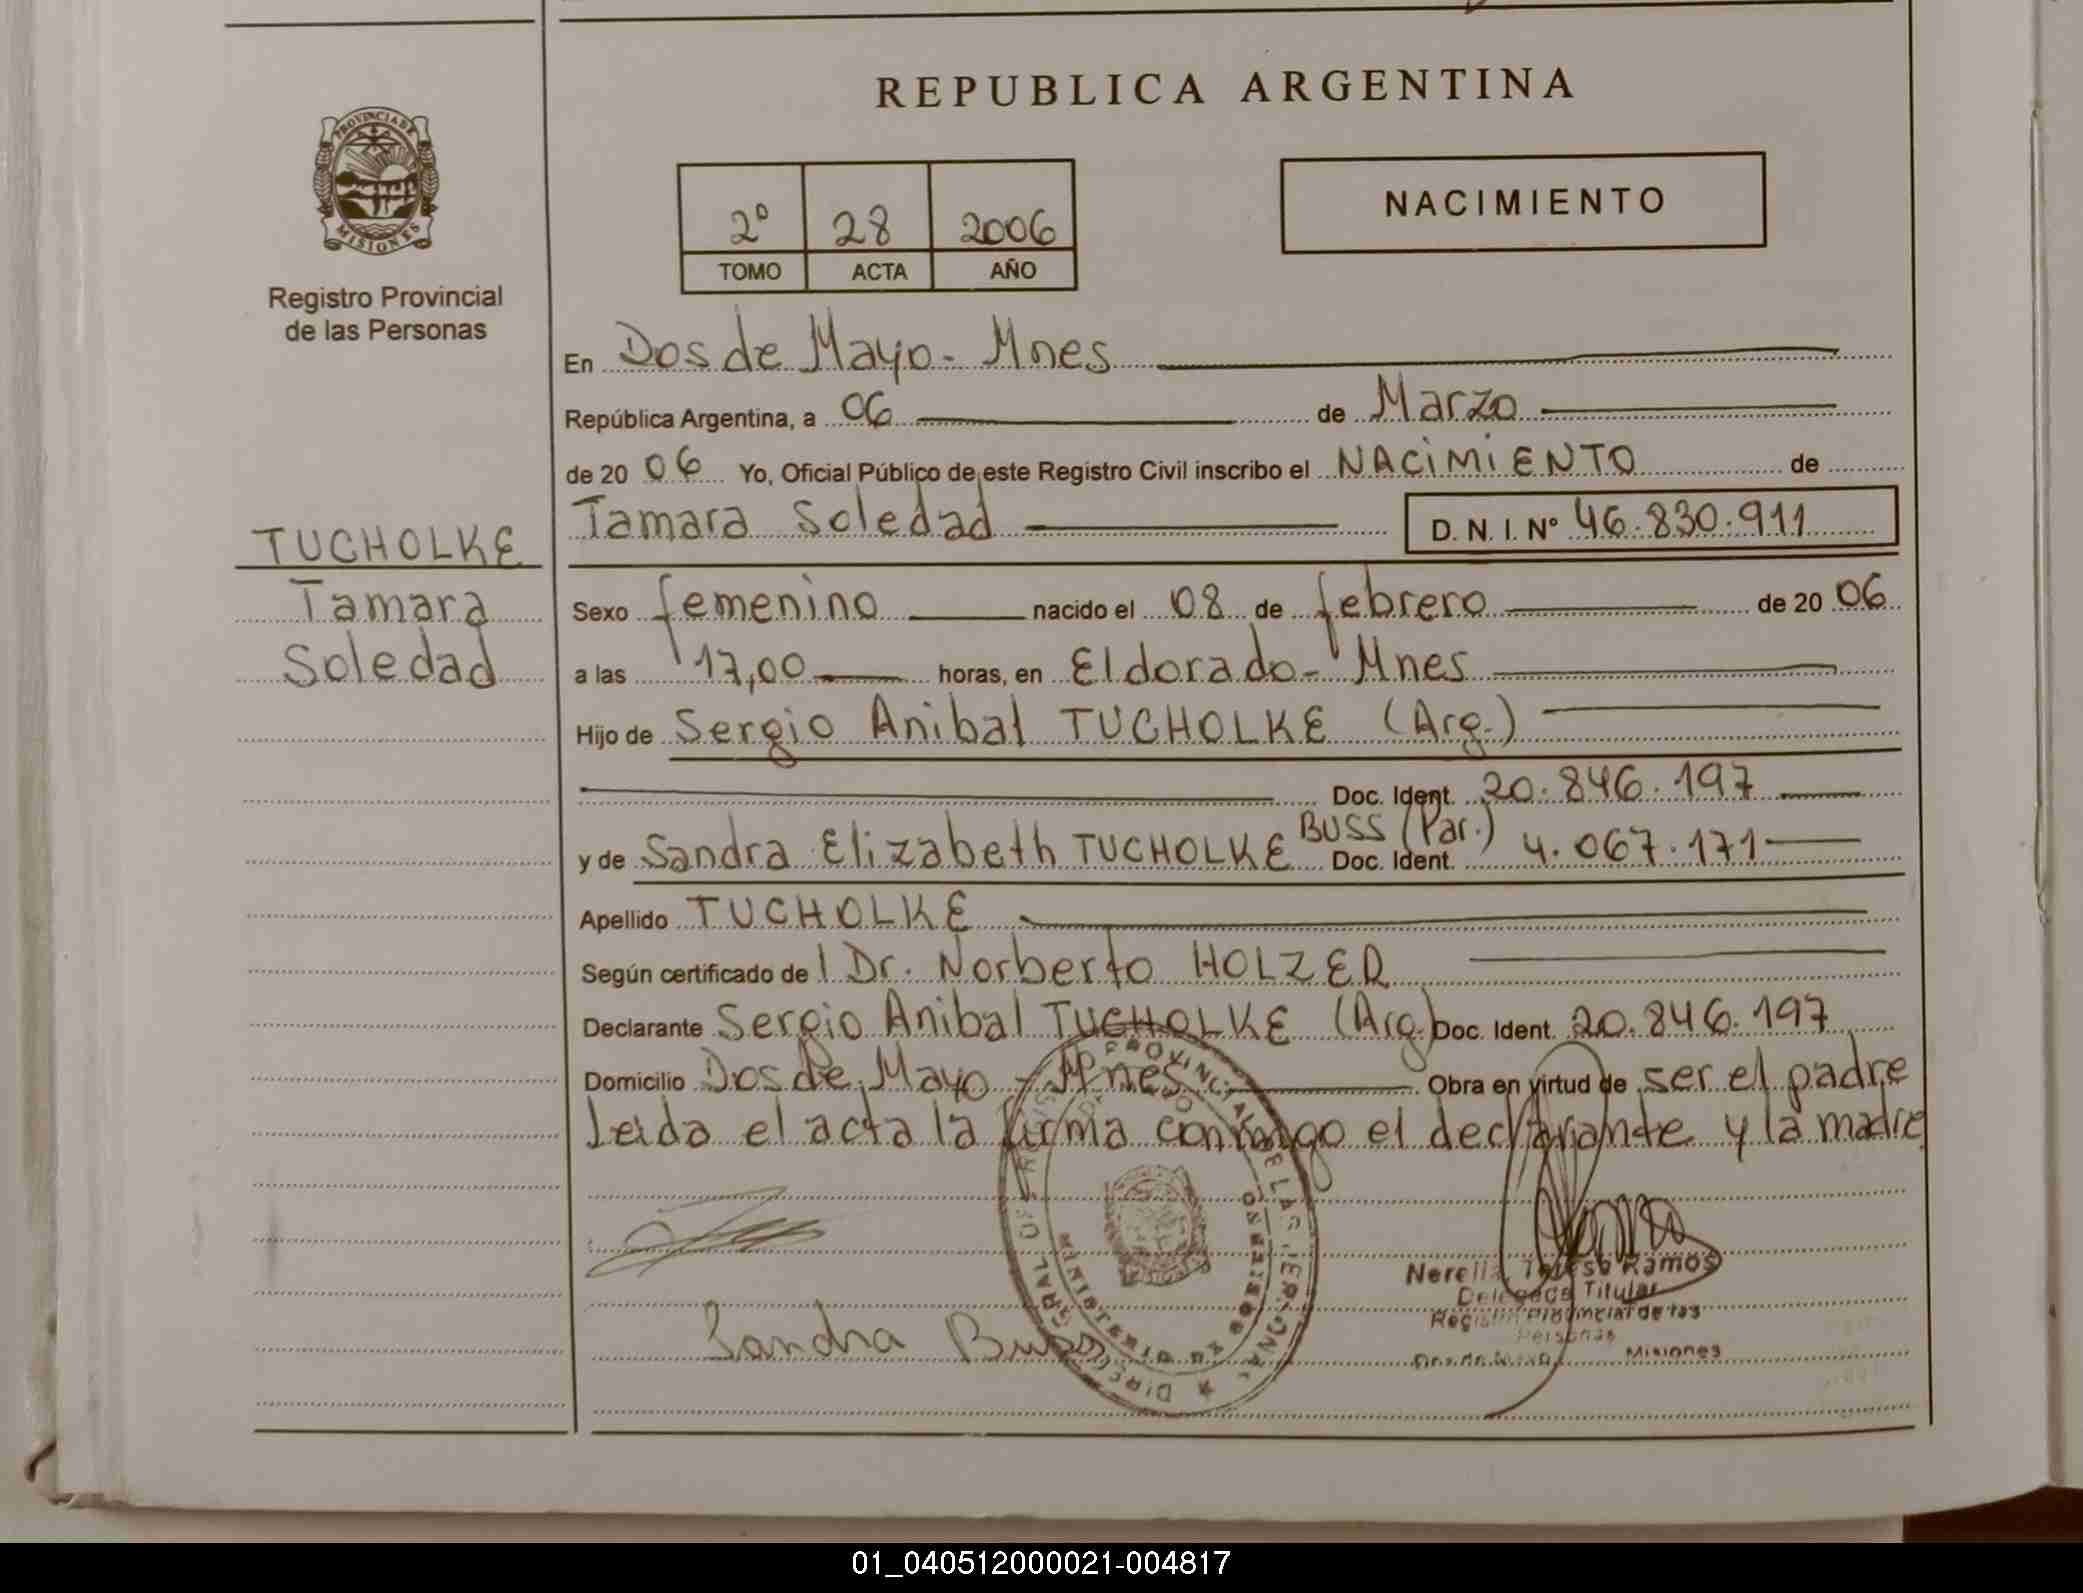 REPUBLICA ARGENTINA
PROVINCIA DE
MISIONES
Registro Provincial
de las Personas
2º 28 2006
TOMO ACTA AÑO
NACIMIENTO
En Dos de Mayo - Mnes
República Argentina, a 06 de Marzo
de 20 06 Yo, Oficial Público de este Registro Civil inscribo el NACIMIENTO de
Tamara Soledad D. N. I. Nº 46.830.911
TUCHOLKE
Tamara
Soledad
Sexo femenino nacido el 08 de febrero de 20 06
a las 17,00 horas, en Eldorado - Mnes
Hijo de Sergio Anibal TUCHOLKE (Arg.)
Doc. Ident. 20.846.197
y de Sandra Elizabeth TUCHOLKE BUSS (Par.) Doc. Ident. 4.067.171
Apellido TUCHOLKE
Según certificado de l Dr. Norberto HOLZER
Declarante Sergio Anibal TUCHOLKE (Arg.) Doc. Ident. 20.846.197
Domicilio Dos de Mayo - Mnes Obra en virtud de ser el padre
Leida el acta la firma conmigo el declarante y la madre
Sandra Buss
Teresa Ramos
Delegada Titular
Registro Provincial de las
Personas
Misiones
01_040512000021-004817